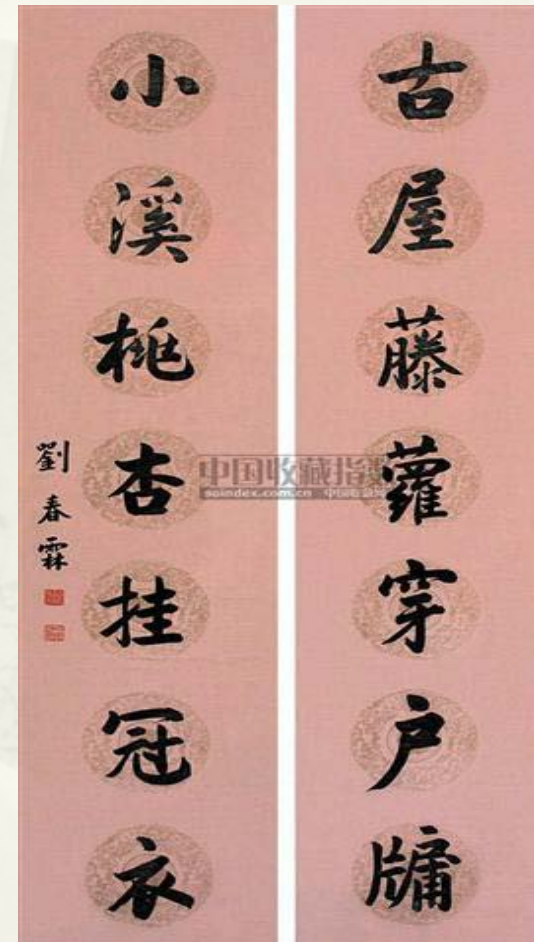 古屋藤蘿穿户牗
小溪桃杏挂冠衣
劉春霖
中国收藏指数
soindex.com.cn